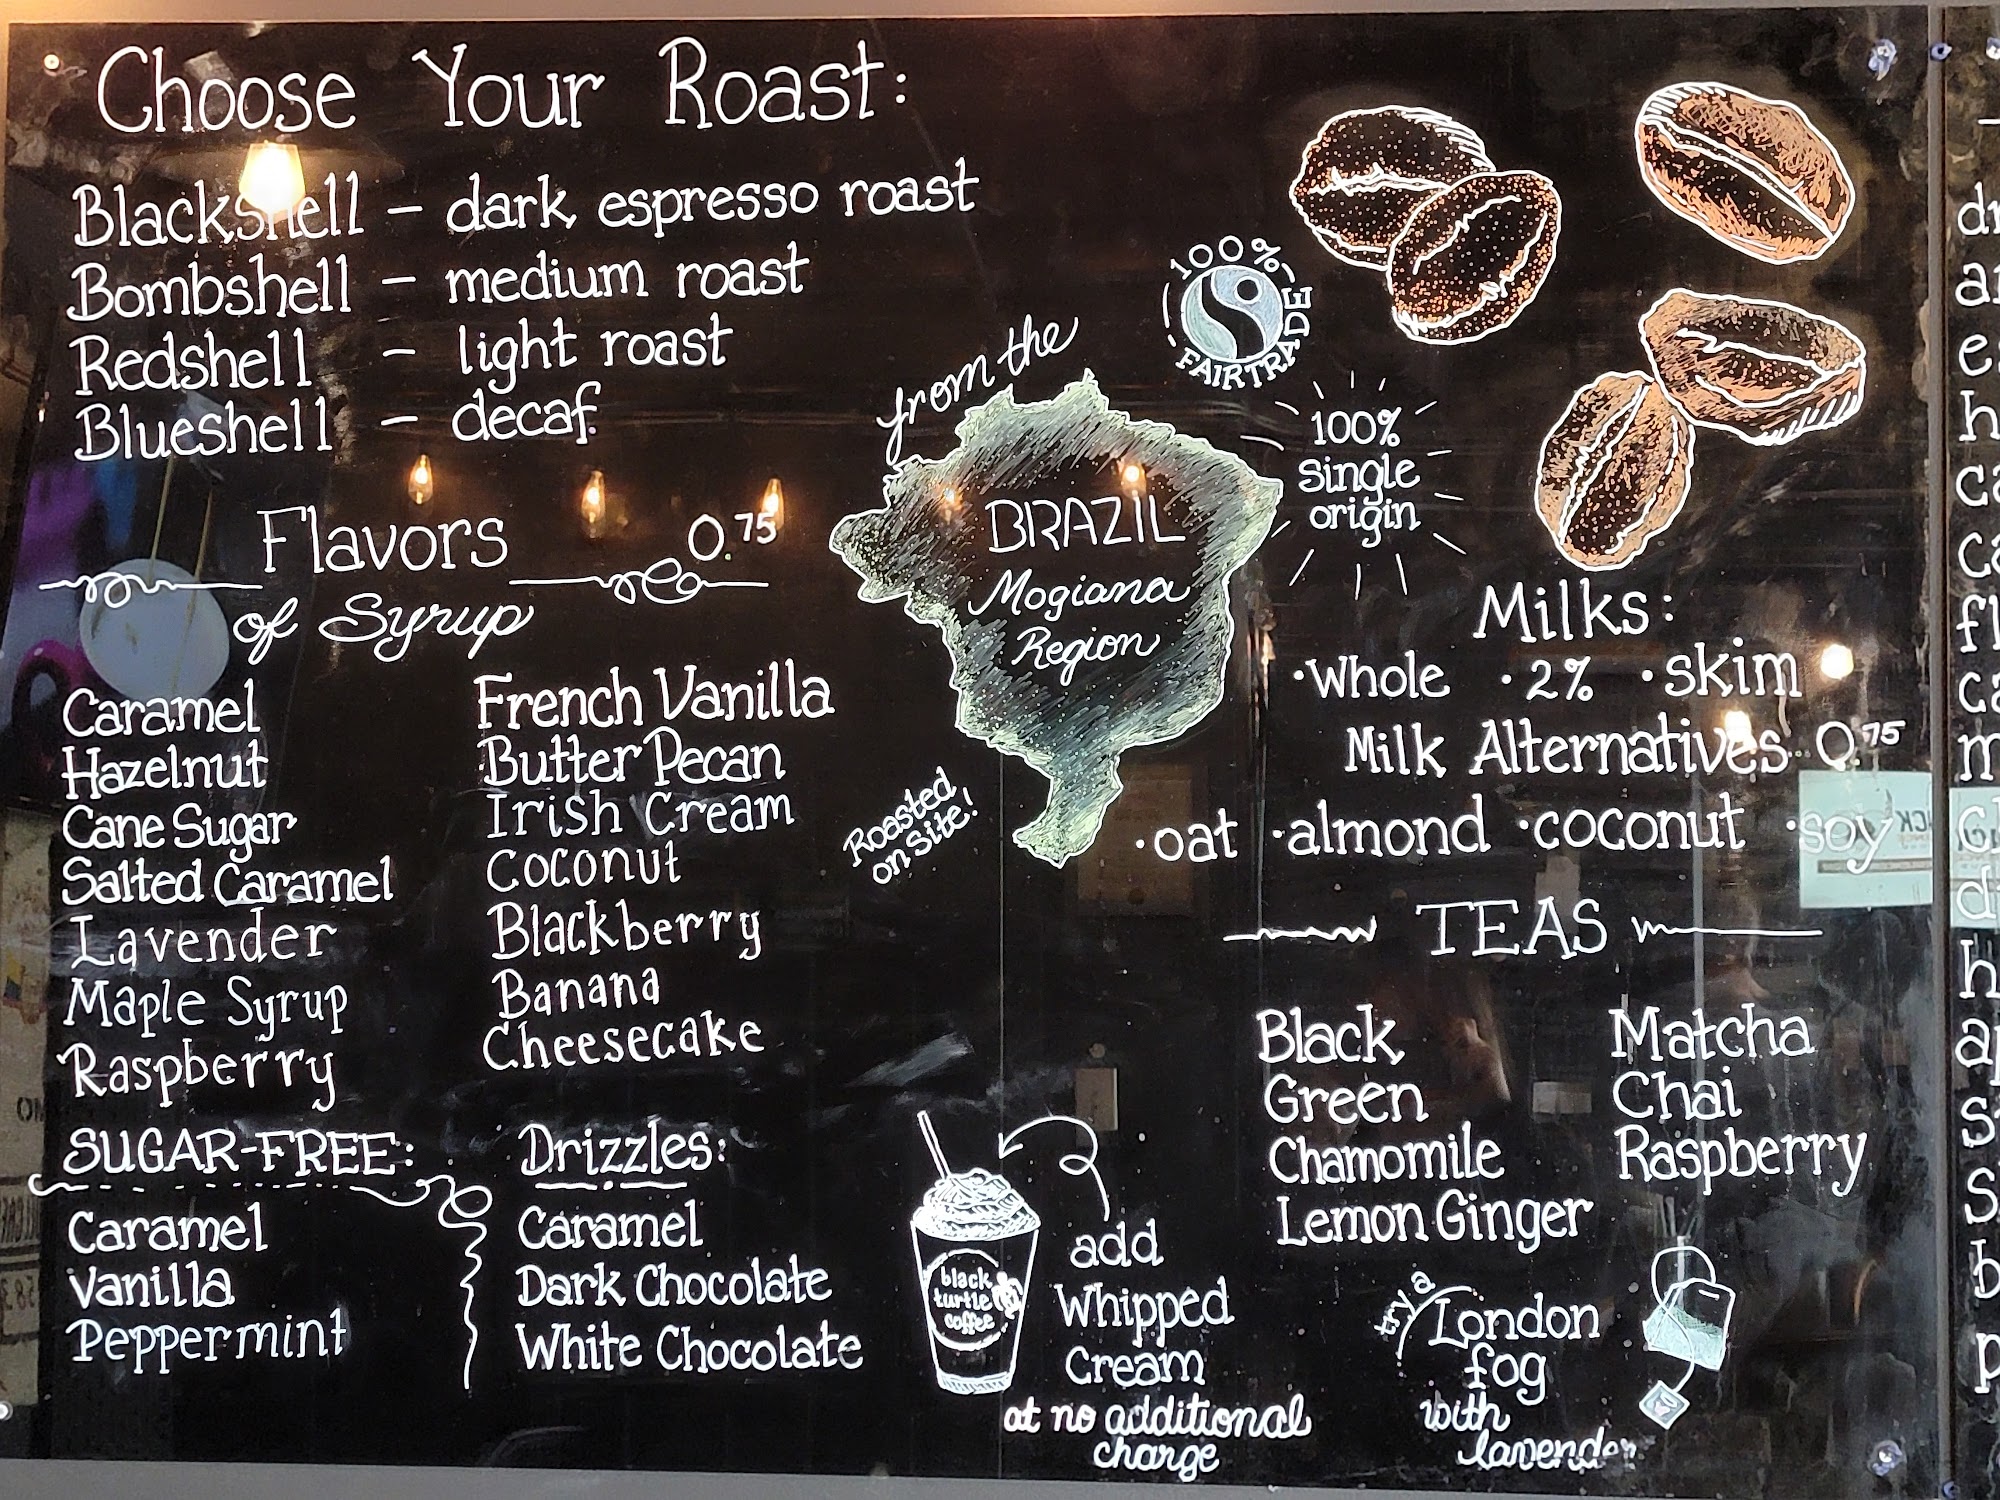 Choose Your Roast:
Blackshell - dark espresso roast
Bombshell - medium roast
Redshell - light roast
Blueshell - decaf
Flavors 0.75
of Syrup
Caramel
Hazelnut
Cane Sugar
Salted Caramel
Lavender
Maple Syrup
Raspberry
French Vanilla
Butter Pecan
Irish Cream
Coconut
Blackberry
Banana
Cheesecake
SUGAR-FREE:
Caramel
Vanilla
Peppermint
Drizzles:
Caramel
Dark Chocolate
White Chocolate
from the
BRAZIL
Mogiana
Region
Roasted
on Site!
100%
FAIRTRADE
100%
single
origin
Milks:
·Whole ·2% ·skim
Milk Alternatives 0.75
·oat ·almond ·coconut ·soy
TEAS
Black
Green
Chamomile
Lemon Ginger
Matcha
Chai
Raspberry
black
turtle
coffee
add
Whipped
Cream
at no additional
charge
try a
London
fog
with
lavender